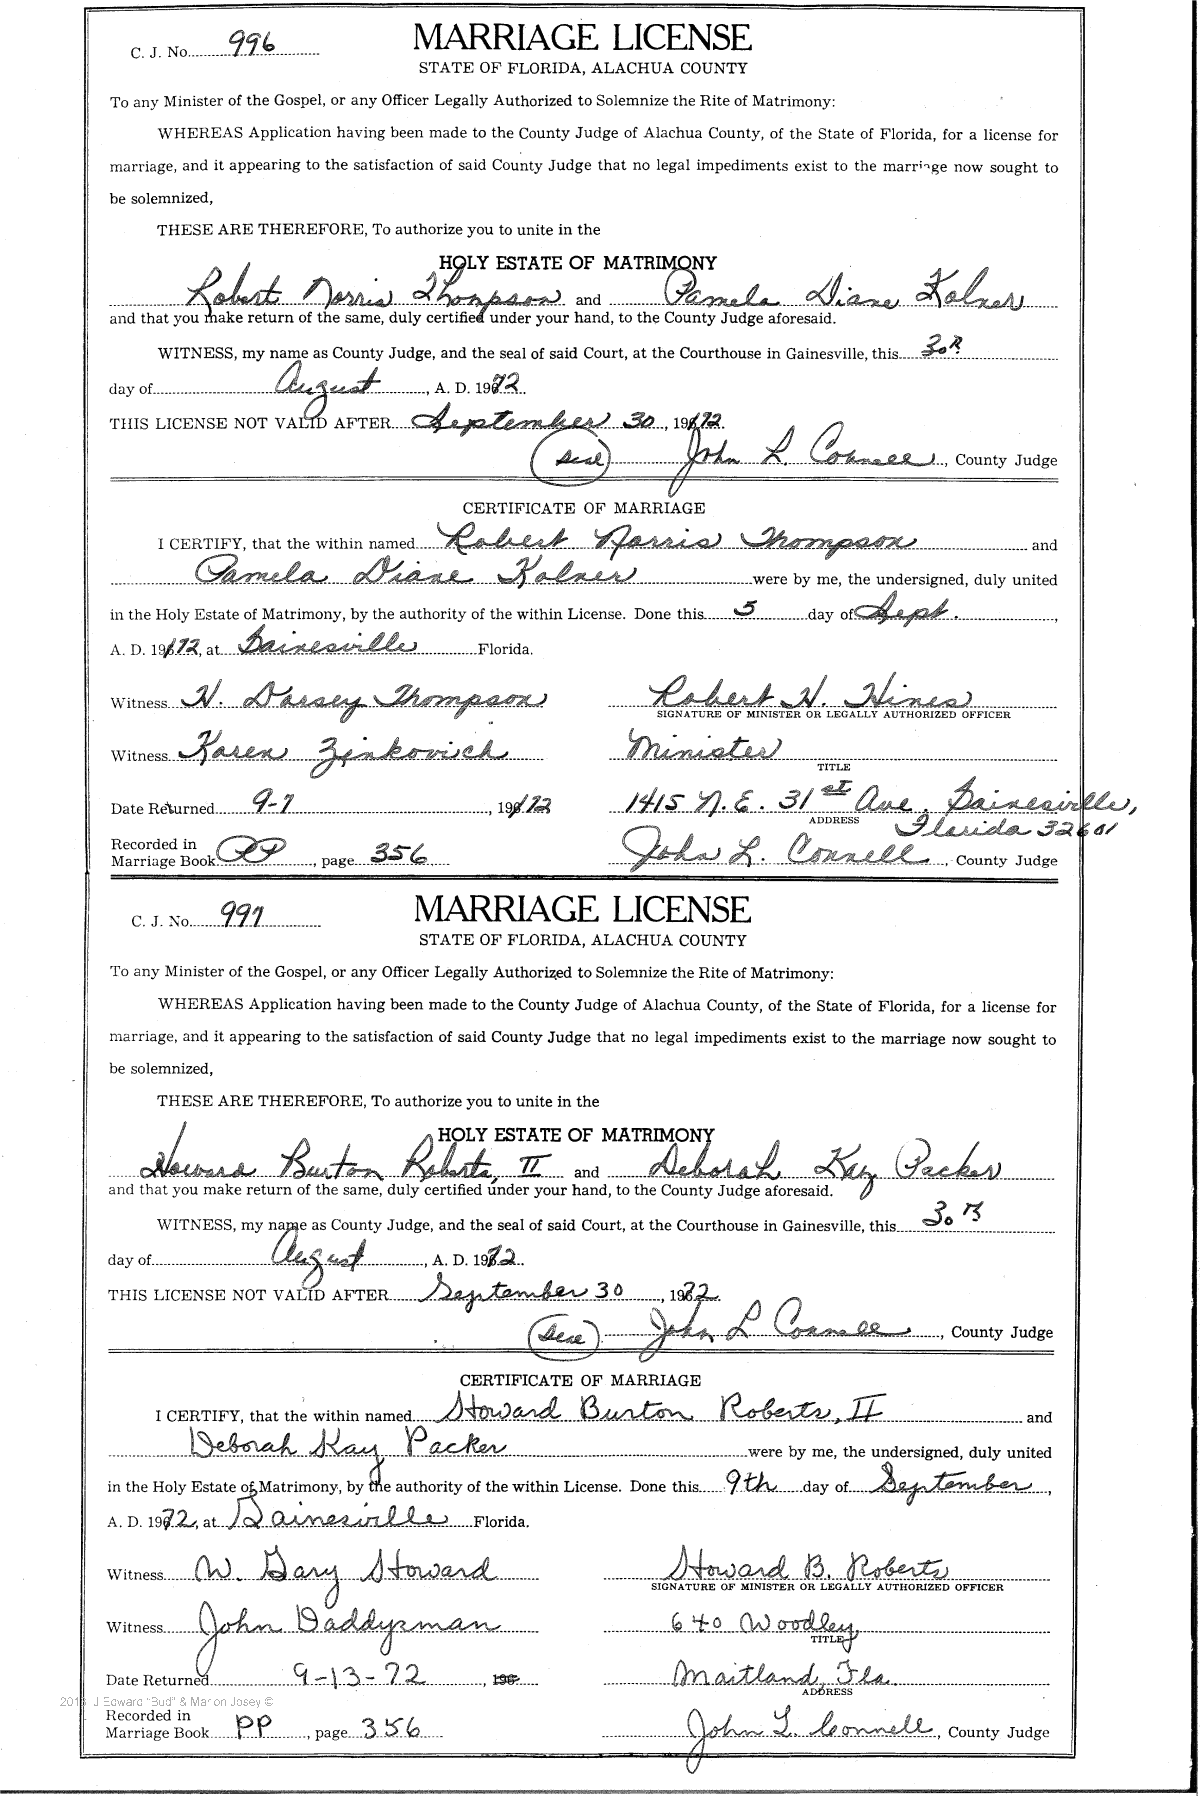 C. J. No. 996
MARRIAGE LICENSE
STATE OF FLORIDA, ALACHUA COUNTY
To any Minister of the Gospel, or any Officer Legally Authorized to Solemnize the Rite of Matrimony:
WHEREAS Application having been made to the County Judge of Alachua County, of the State of Florida, for a license for
marriage, and it appearing to the satisfaction of said County Judge that no legal impediments exist to the marriage now sought to
be solemnized,
THESE ARE THEREFORE, To authorize you to unite in the
HOLY ESTATE OF MATRIMONY
Robert Norris Thompson and Pamela Diane Kolner
and that you make return of the same, duly certified under your hand, to the County Judge aforesaid.
WITNESS, my name as County Judge, and the seal of said Court, at the Courthouse in Gainesville, this 30th
day of August, A. D. 1972
THIS LICENSE NOT VALID AFTER September 30, 1972.
Seal John L. Connell, County Judge
CERTIFICATE OF MARRIAGE
I CERTIFY, that the within named Robert Norris Thompson and
Pamela Diane Kolner were by me, the undersigned, duly united
in the Holy Estate of Matrimony, by the authority of the within License. Done this 5 day of Sept.,
A. D. 1972, at Gainesville Florida.
Witness H. Dorsey Thompson Robert H. Hines
SIGNATURE OF MINISTER OR LEGALLY AUTHORIZED OFFICER
Witness Karen Zinkovich Minister
TITLE
Date Returned 9-7, 1972 1415 N. E. 31st Ave. Gainesville,
ADDRESS Florida 32601
Recorded in
Marriage Book PP, page 356 John L. Connell, County Judge
C. J. No. 997
MARRIAGE LICENSE
STATE OF FLORIDA, ALACHUA COUNTY
To any Minister of the Gospel, or any Officer Legally Authorized to Solemnize the Rite of Matrimony:
WHEREAS Application having been made to the County Judge of Alachua County, of the State of Florida, for a license for
marriage, and it appearing to the satisfaction of said County Judge that no legal impediments exist to the marriage now sought to
be solemnized,
THESE ARE THEREFORE, To authorize you to unite in the
HOLY ESTATE OF MATRIMONY
Howard Burton Roberts, II and Deborah Kay Packer
and that you make return of the same, duly certified under your hand, to the County Judge aforesaid.
WITNESS, my name as County Judge, and the seal of said Court, at the Courthouse in Gainesville, this 30th
day of August, A. D. 1972.
THIS LICENSE NOT VALID AFTER September 30, 1972.
Seal John L Connell, County Judge
CERTIFICATE OF MARRIAGE
I CERTIFY, that the within named Howard Burton Roberts, II and
Deborah Kay Packer were by me, the undersigned, duly united
in the Holy Estate of Matrimony, by the authority of the within License. Done this 9th day of September,
A. D. 1972, at Gainesville Florida.
Witness W. Gary Howard Howard B. Roberts
SIGNATURE OF MINISTER OR LEGALLY AUTHORIZED OFFICER
Witness John Daddysman 640 Woodley
TITLE
Date Returned 9-13-72, 196 Maitland, Fla.
ADDRESS
J Edward "Bud" & Marion Josey ©
Recorded in
Marriage Book PP, page 356 John L. Connell, County Judge